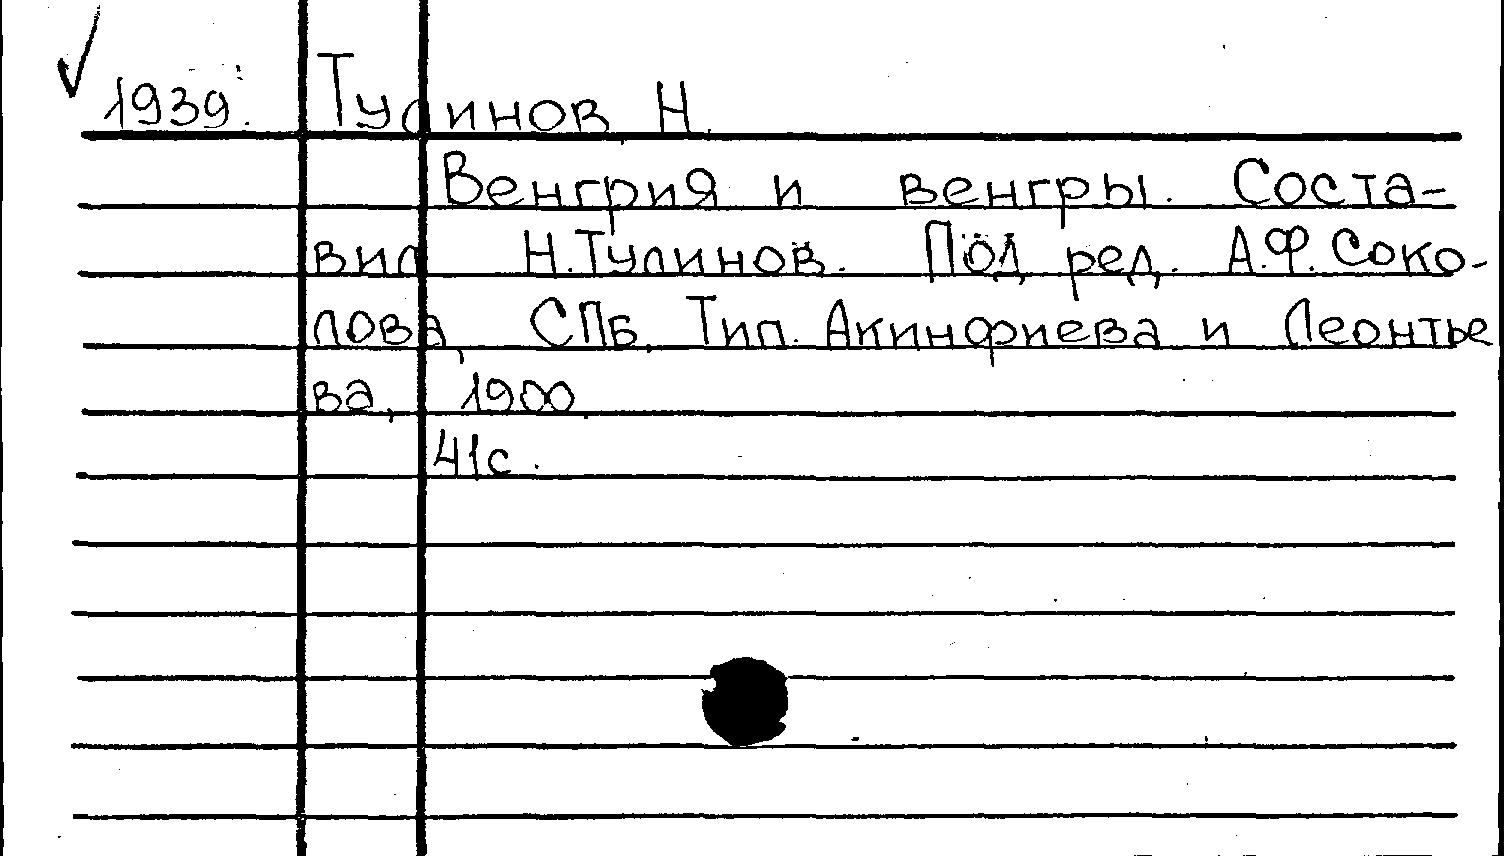 ✓ 1939. Тулинов Н.
Венгрия и венгры. Соста-
вил Н.Тулинов. Под ред. А.Ф.Соко-
лова, СПб, Тип. Акинфиева и Леонтье
ва, 1900
41с.